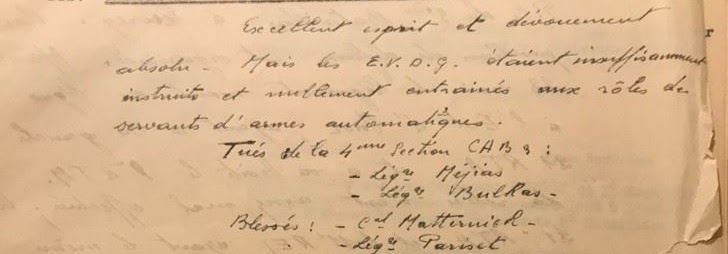 Excellent esprit et dévouement
absolu - Mais les E.V.D.G. étaient insuffisamment
instruits et nullement entrainés aux rôles de
servants d'armes automatiques.
Tués de la 4ème Section CAB 3 :
- Légre Méjias
- Légre Bulkas -
Blessés : - Cal Matternich -
- Légre Pariset